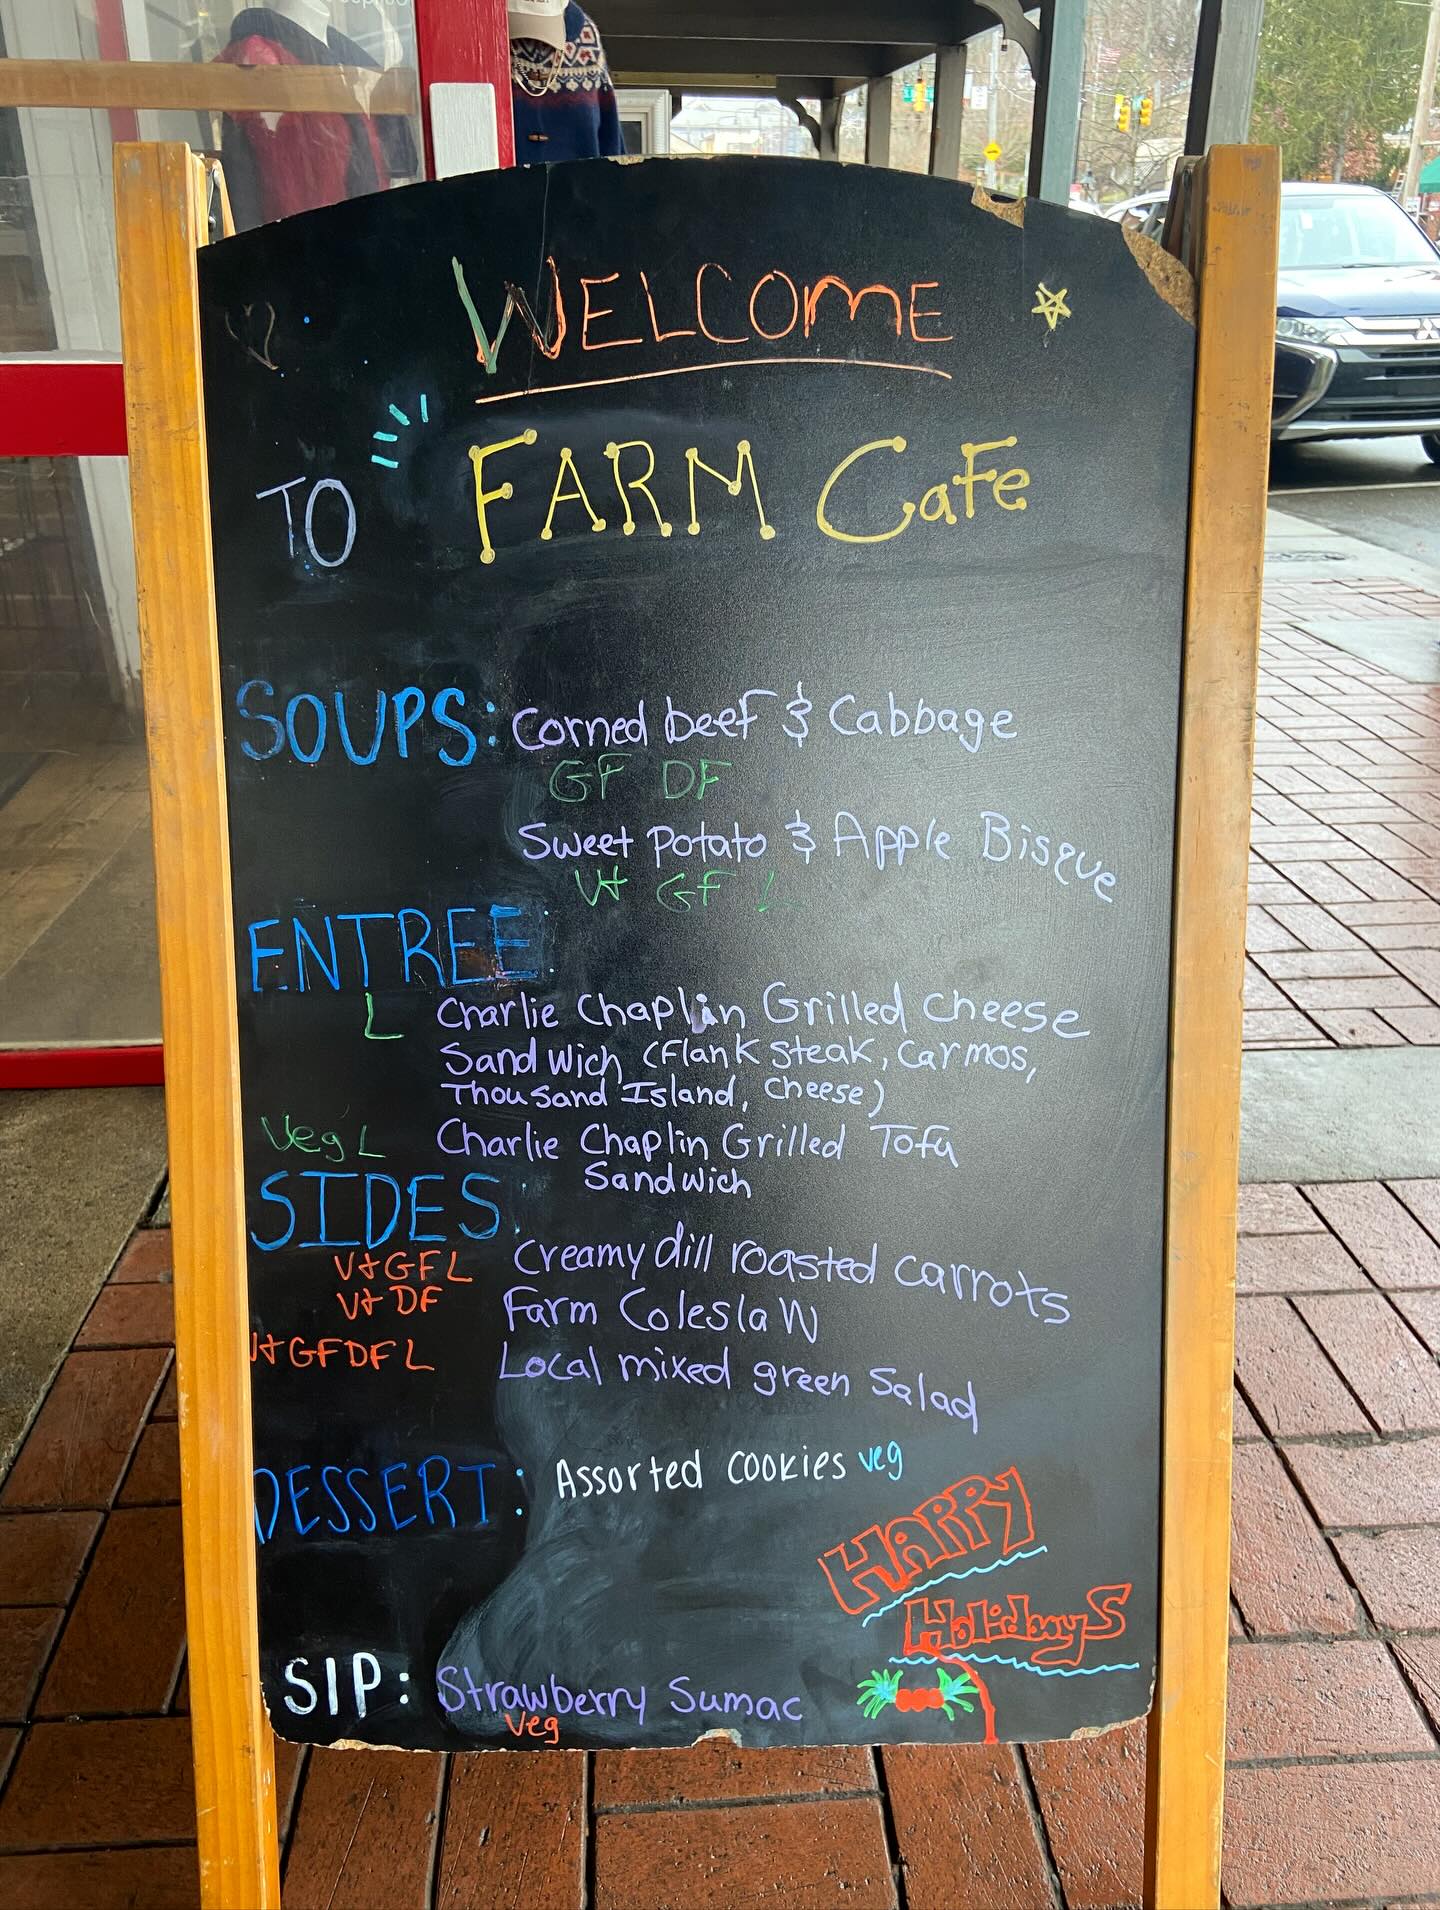 WELCOME
TO FARM CaFe
SOUPS: Corned beef & Cabbage
GF DF
Sweet Potato & Apple Bisque
V+ GF L
ENTREE:
L Charlie Chaplin Grilled Cheese
Sandwich (Flank steak, Carmos,
Thousand Island, Cheese)
Veg L Charlie Chaplin Grilled Tofu
Sandwich
SIDES:
V+ GF L Creamy dill roasted carrots
V+ DF Farm Coleslaw
V+ GF DF L Local mixed green Salad
DESSERT: Assorted cookies veg
HAPPY
HolidayS
SIP: Strawberry Sumac
Veg